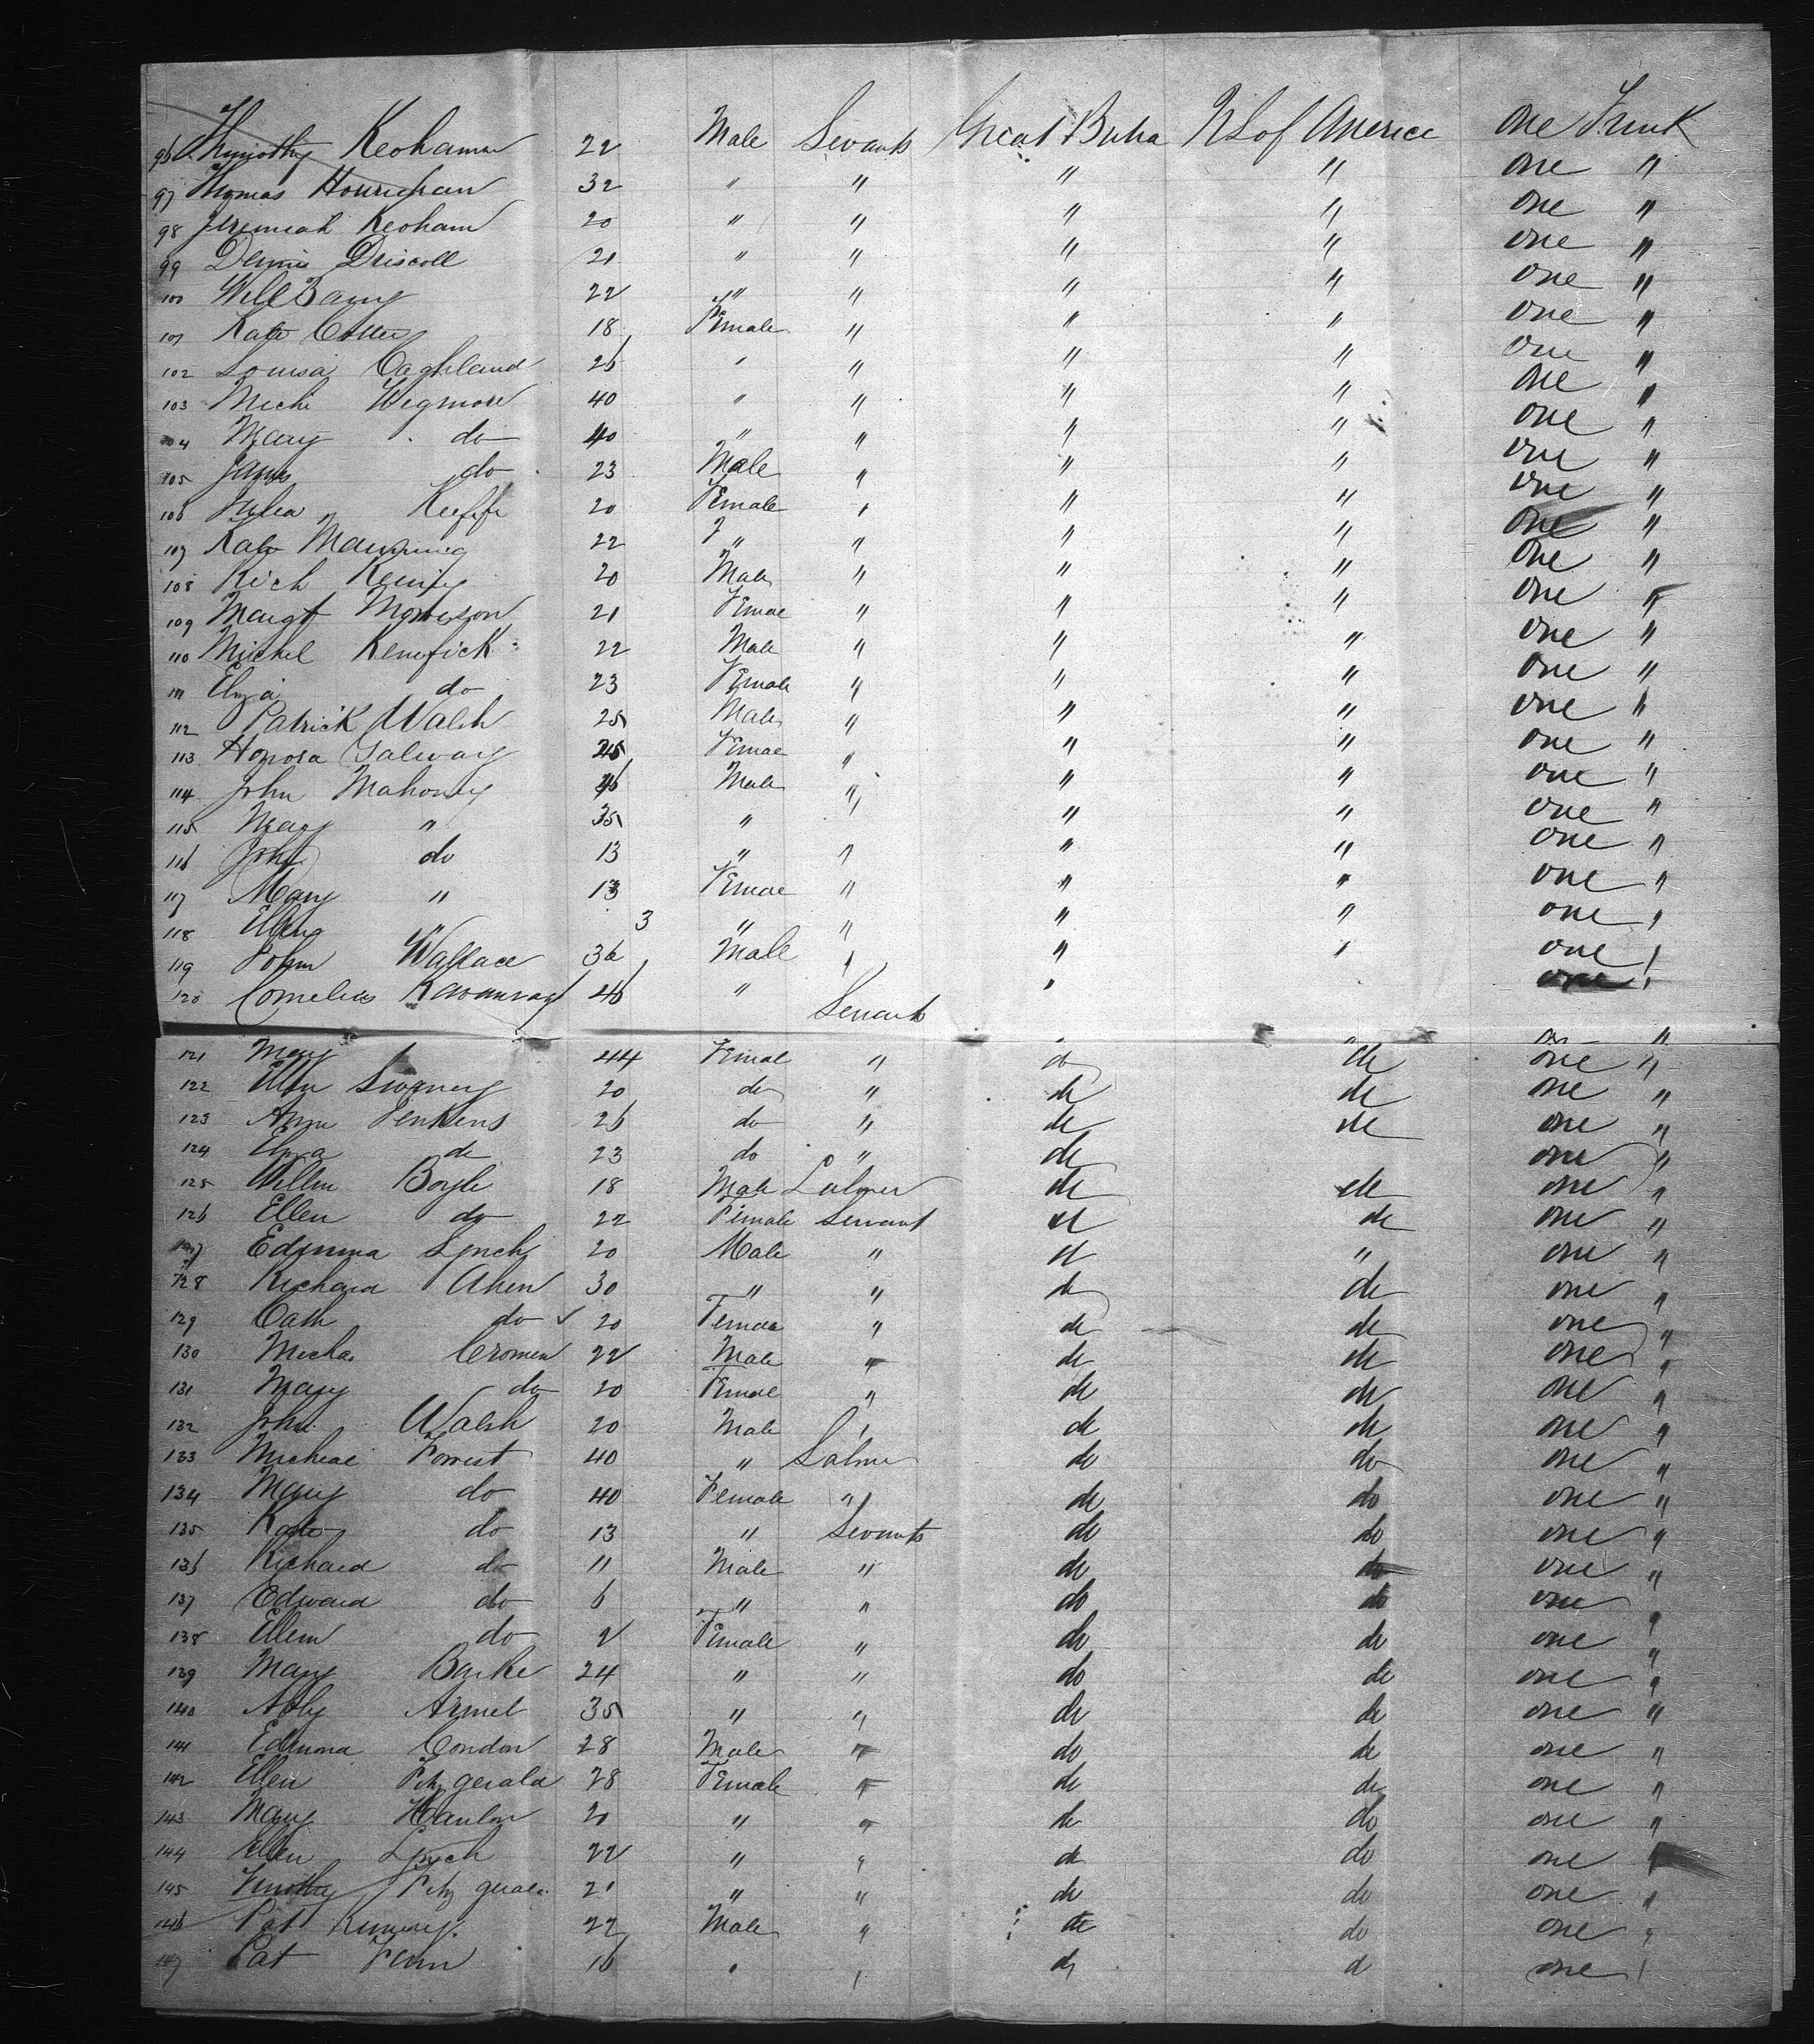 96 Timothy Keohann 22 Male Sevants Great Britia US of America one Trunk
97 Thomas Hourighan 32 " " " " one "
98 Jeremiah Keoham 20 " " " " one "
99 Dennis Driscoll 21 " " " " one "
100 Will Barry 22 " " " " one "
101 Kate 18 Female " " " one "
102 Louisa Caghland 26 " " " " one "
103 Miche Wigmore 40 " " " " one "
104 Mary do 40 " " " " one "
105 James do 23 Male " " " one "
106 Julia Keeffe 20 Female " " " one "
107 Kate Manning 22 " " " " one "
108 Rich 20 Male " " " one "
109 Margt Morrison 21 Femae " " " one "
110 Michel Kenefick 22 Male " " " one "
111 Eliza do 23 Female " " " one "
112 Patrick Walsh 25 Male " " " one "
113 Honora Galway 25 Femae " " " one "
114 John Mahoney 46 Male " " " one "
115 Mary " 35 " " " one "
116 John do 13 " " " " one "
117 Mary " 13 Femae " " " one "
118 Ellen " 3 " " " " one "
119 John Wallace 36 Male " " " one "
120 Cornelius Kavanragh 46 " Servants " one "
121 Mary 44 Femal " do do one "
122 Ellen Swaney 20 do " do do one "
123 Anne Jenkens 26 do " do do one "
124 Eliza do 23 do " do one "
125 Willm Boyle 18 Male Labrer do do one "
126 Ellen do 22 Female Servant do do one "
127 Edmma Lynch 20 Male " do " one "
128 Richard Ahen 30 " " do do one "
129 Cath do 20 Femae " do do one "
130 Micha Cromen 22 Male " do do one "
131 Mary do 20 Femae " do do one "
132 John Walsh 20 Male " do do one "
133 Micheal Forrest 40 " Labrer do do one "
134 Mary do 40 Female " do do one "
135 Kate do 13 " Sevants do do one "
136 Richard do 11 Male " do do one "
137 Edward do 6 " " do do one "
138 Ellen do 2 Female " do do one "
139 Mary Burke 24 " " do do one "
140 Abby Armel 35 " " do do one "
141 Edmond Condon 28 Male " do do one "
142 Ellen Fitzgerald 28 Female " do do one "
143 Mary Hanlon 20 " " do do one "
144 Ellen Lynch 22 " " do do one "
145 Timothy Fitz geral 21 " " do do one "
146 Pat 22 Male " do do one "
147 Pat Fenn 16 " " do d one "